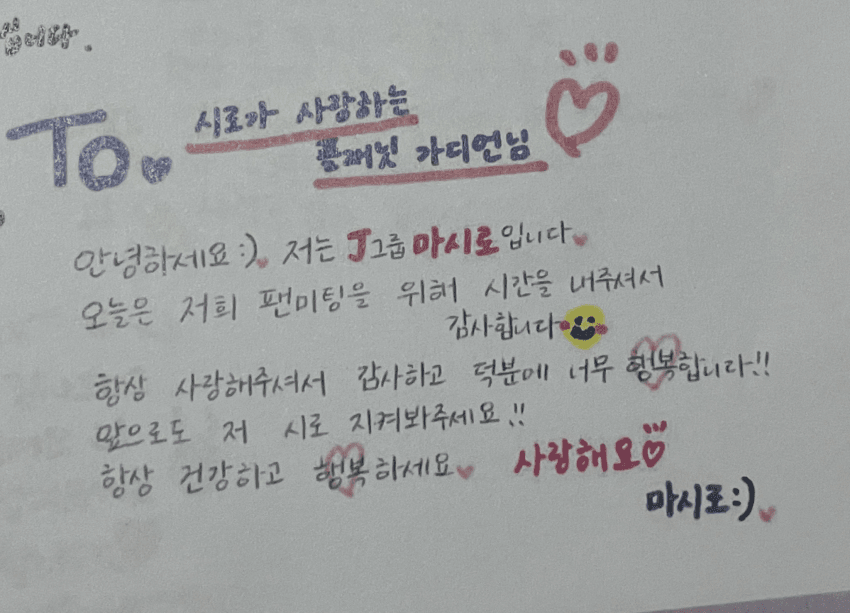 니다.
To 시로가 사랑하는
플래닛 가디언님
안녕하세요:) 저는 J그룹 마시로입니다
오늘은 저희 팬미팅을 위해 시간을 내주셔서
감사합니다
항상 사랑해주셔서 감사하고 덕분에 너무 행복합니다!!
앞으로도 저 시로 지켜봐주세요!!
항상 건강하고 행복하세요 사랑해요
마시로:)